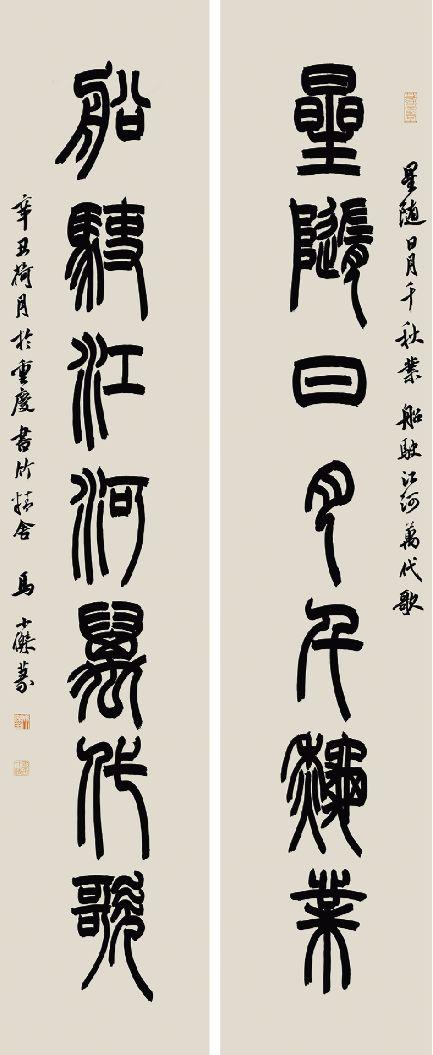 星隨日月千秋業 船駛江河萬代歌
星隨日月千秋業
船駛江河萬代歌
辛丑荷月於重慶書竹精舍 馬小傑篆